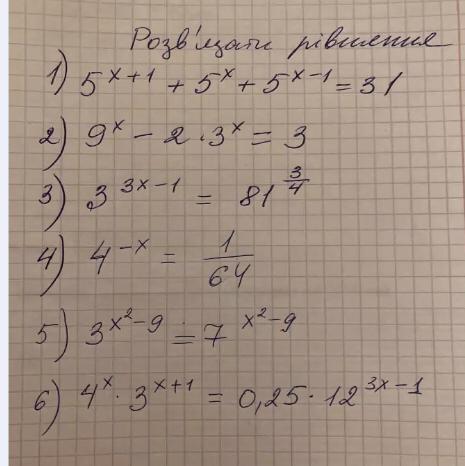 Розв'язати рівняння
1) 5^{x+1} + 5^x + 5^{x-1} = 31
2) 9^x - 2 · 3^x = 3
3) 3^{3x-1} = 81^{\frac{3}{4}}
4) 4^{-x} = \frac{1}{64}
5) 3^{x^2-9} = 7^{x^2-9}
6) 4^x · 3^{x+1} = 0,25 · 12^{3x-1}